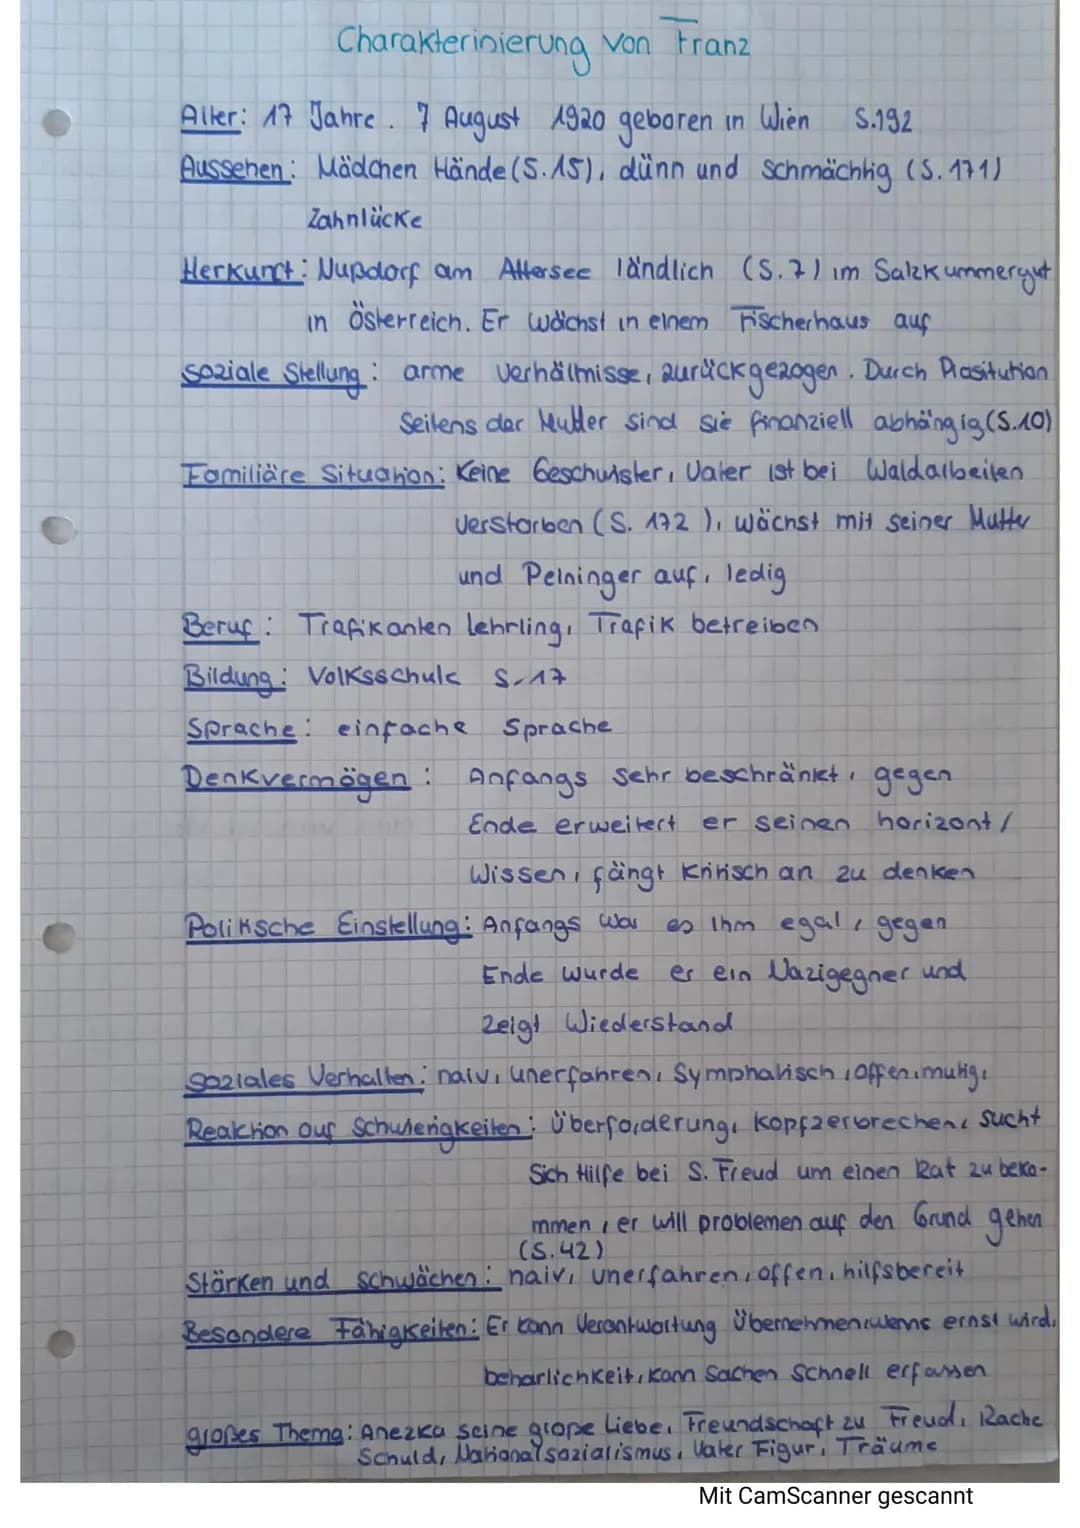 Charakterisierung von Franz
Alter: 17 Jahre. 7 August 1920 geboren in Wien S.192
Aussehen: Mädchen Hände (S.15), dünn und schmächtig (S.171)
Zahnlücke
Herkunft: Nußdorf am Attersee ländlich (S.7) im Salzkummergut
in Österreich. Er wächst in einem Fischerhaus auf
soziale Stellung: arme Verhälmisse, zurückgezogen. Durch Prositution
Seitens der Mutter sind sie finanziell abhängig (S.10)
Familiäre Situation: Keine Geschwister, Vater ist bei Waldarbeiten
verstorben (S. 172), wächst mit seiner Mutter
und Peininger auf, ledig
Beruf: Trafikanten Lehrling, Trafik betreiben
Bildung: Volksschule S.17
Sprache: einfache Sprache
Denkvermögen: Anfangs sehr beschränkt, gegen
Ende erweitert er seinen horizont /
Wissen, fängt kritisch an zu denken
Politische Einstellung: Anfangs war es ihm egal, gegen
Ende wurde er ein Nazigegner und
zeigt Wiederstand
soziales Verhalten: naiv, unerfahren, Symphatisch, offen, mutig,
Reaktion auf Schwierigkeiten: Überforderung, kopfzerbrechen, sucht
sich Hilfe bei S. Freud um einen Rat zu beko-
mmen, er will problemen auf den Grund gehen
(S.42)
Stärken und schwächen: naiv, unerfahren, offen, hilfsbereit
Besondere Fähigkeiten: Er kann Verantwortung Übernehmen, wenns ernst wird,
beharlichkeit, kann Sachen schnell erfassen
großes Thema: Anezka seine große Liebe, Freundschaft zu Freud, Rache
Schuld, Nationalsozialismus, Vater Figur, Träume
Mit CamScanner gescannt